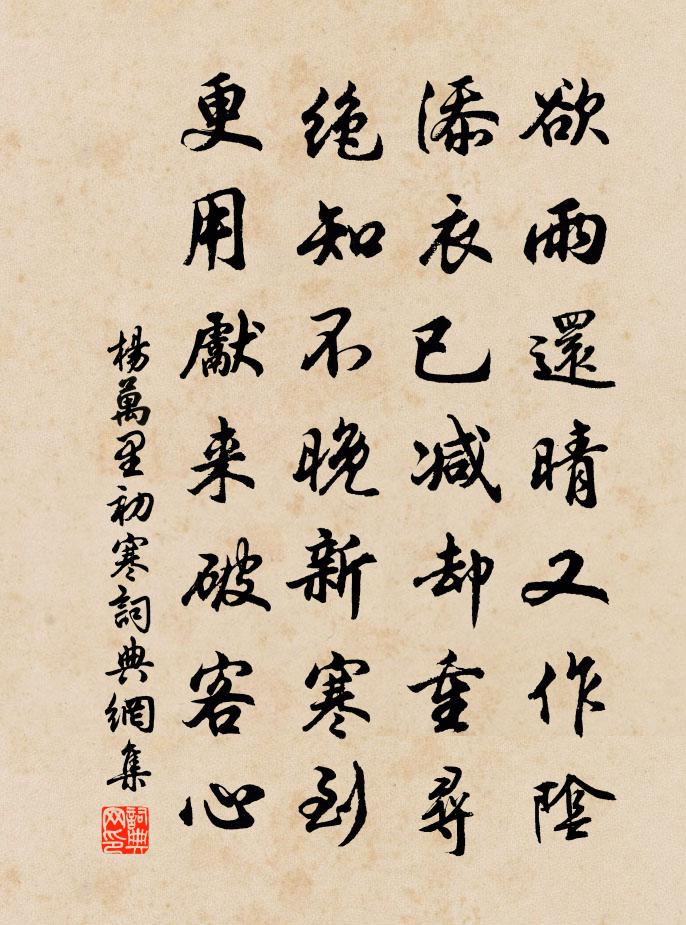 欲雨還晴又作陰
添衣已减却重尋
絶知不晚新寒到
更用獻来破客心
楊萬里初寒詞典網集
詞典网印